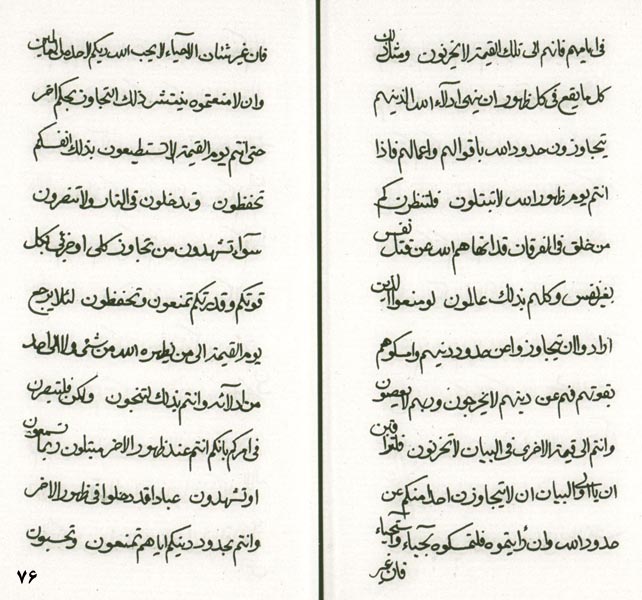 فی ایامهم فانهم الی تلک القیمة لا یحزنون ومثل ذلک
کل ما یقع فی کل ظهور ان ینهی ادلاء الله الذینهم
یتجاوزون حدود الله باقوالهم واعمالهم فاذا
انتم یوم ظهور الله لا تبتلون فلتنظرن کم
من خلق فی الفرقان قد انهاهم الله عن قتل نفس
بغیر نفس وکلهم بذلک عالمون لو منعوا الذین
ارادوا ان یتجاوزوا عن حدود دینهم وامسکوهم
بقوتهم فهم عن دینهم لا یخرجون وربهم لا یعصون
وانتم الی قیمة الاخری فی البیان لا تحزنون فلتراقبن
ان یا اولی البیان ان لا یتجاوزن احد منکم عن
حدود الله وان رأیتموه فلتمسکوه بحیاء واستحیاء
فان غیر
فان غیر شئنان الاحیاء لا یحب الله ربکم لاحد من العالمین
وان لا منعتموه ینتشر ذلک التجاوز بحکم اخر
حتی انتم یوم القیمة لا تستطیعون بذلک انفسکم
تحفظون وتدخلون فی النار ولا تنصرون
سواء تشهدون من تجاوز کلی او جزئی فبکل
قوتکم وقدرتکم تمنعون وتحفظون لئلا یرجع
یوم القیمة الی من یظهره الله من شئ ولا الی احد
من ادلائه وانتم بذلک لتنجون ولکن فلتبصرن
فی امرکم بانکم انتم عند ظهور الاخر مبتلون ربما تسمعون
او تشهدون عبادا قد دخلوا فی ظهور الاخر
وانتم بحدود دینکم ایاهم تمنعون وتحسبون
۷۶